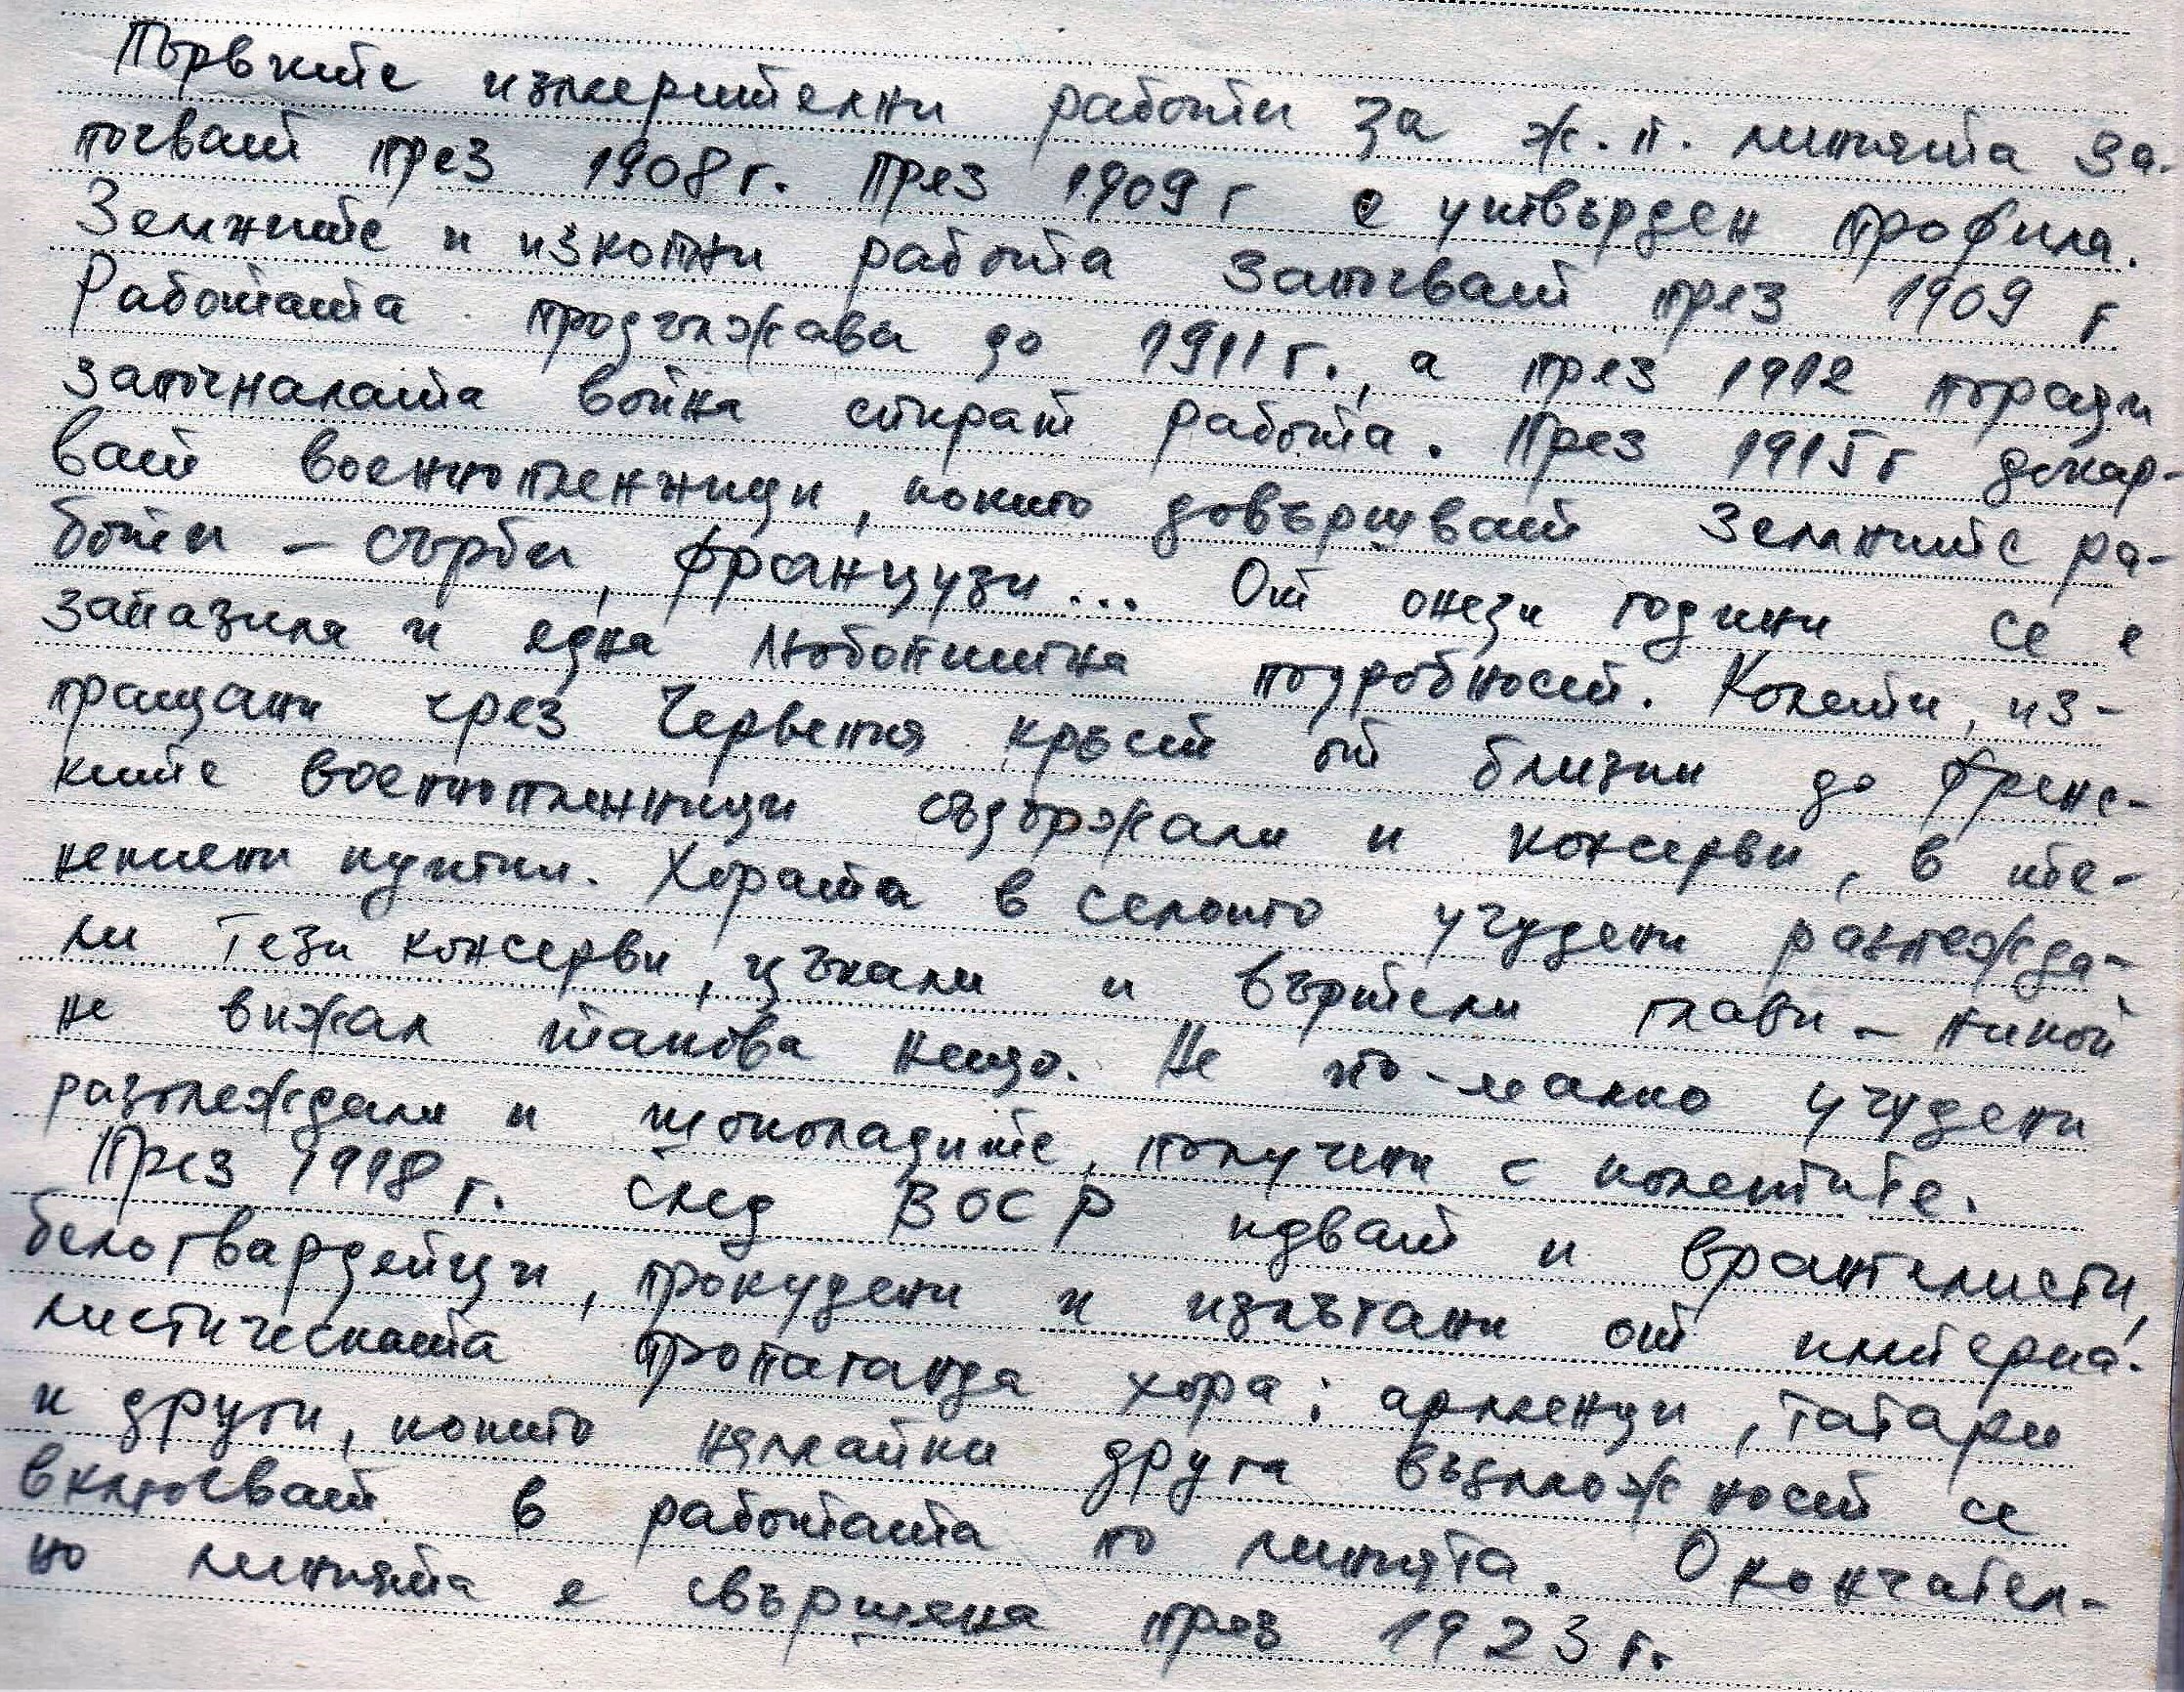 Първите измерителни работи за ж.п. линията за-
почват през 1908 г. През 1909 г е утвърден профила.
Земните и изкопни работа започват през 1909 г
Работата продължава до 1911 г., а през 1912 поради
започналата война спират работа. През 1915 г докар-
ват военнопленници, които довършват земните ра-
боти – сърби, французи... От онези години се е
запазила и една любопитна подробност. Колети, из-
пращани чрез Червения кръст от близки до френс-
ките военнопленници съдържали и консерви, в те-
некиени кутии. Хората в селото учудени разглежда-
ли тези консерви, цъкали и въртели глави – никой
не виждал такова нещо. Не по-малко учудени
разглеждали и шоколадите, получени с колетите.
През 1918 г. след ВОСР идват и врангелисти,
белогвардейци, прокудени и излъгани от империа-
листическата пропаганда хора: арменци, татари
и други, които нямайки друга възможност се
включват в работата по линията. Окончател-
но линията е свършена през 1923 г.